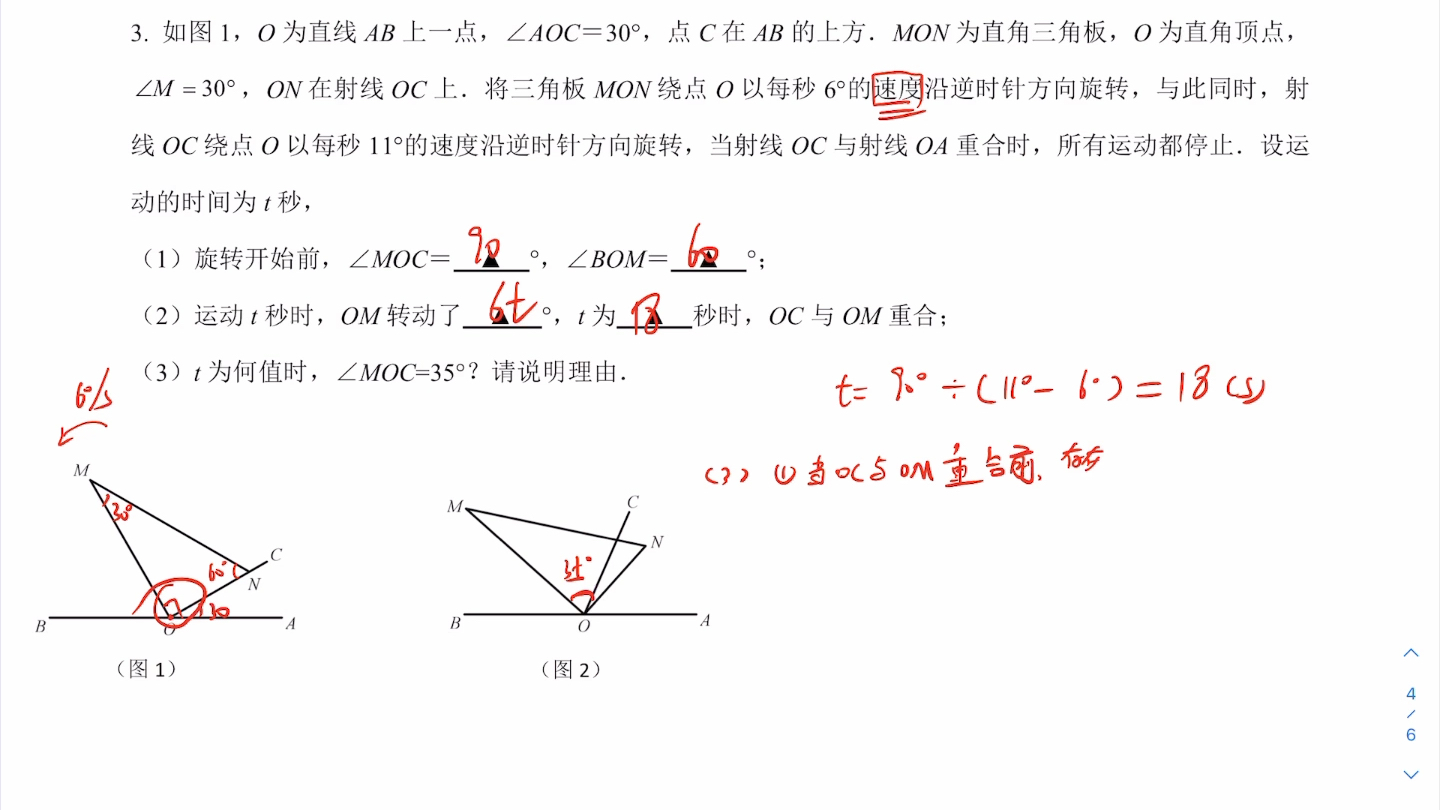 3. 如图 1，O 为直线 AB 上一点，∠AOC＝30°，点 C 在 AB 的上方．MON 为直角三角板，O 为直角顶点，
∠M = 30°，ON 在射线 OC 上．将三角板 MON 绕点 O 以每秒 6°的速度沿逆时针方向旋转，与此同时，射
线 OC 绕点 O 以每秒 11°的速度沿逆时针方向旋转，当射线 OC 与射线 OA 重合时，所有运动都停止．设运
动的时间为 t 秒，
（1）旋转开始前，∠MOC＝ 90 °，∠BOM＝ 60 °；
（2）运动 t 秒时，OM 转动了 6t °，t 为 18 秒时，OC 与 OM 重合；
（3）t 为何值时，∠MOC=35°？请说明理由．
t= 90° ÷ (11° - 6°) = 18 (s)
(3) ① 当 OC 与 OM 重合前,
6°/s
M
30°
C
60°
N
30
B
O
A
（图 1）
M
C
N
35°
B
O
A
（图 2）
4
/
6